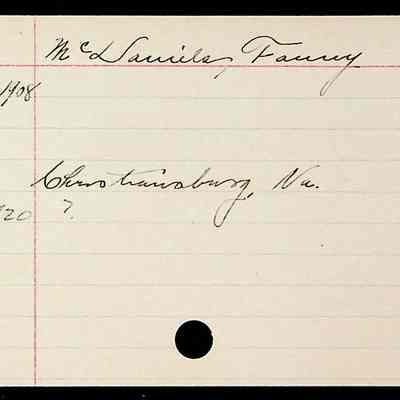 McDaniels, Fanny
1908
Christiansburg, Va.
20 ?.